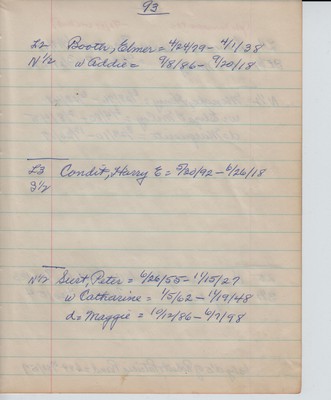 93
L2 Booth, Elmer = 4/24/79 - 4/1/38
N 1/2 w Addie = 9/8/86 - 9/20/18
L3 Condit, Harry E = 5/20/92 - 6/26/18
S 1/2
N 1/2 Peter = 6/26/55 - 11/15/27
w Catharine = 1/5/62 - 1/19/48
d = Maggie = 10/12/86 - 6/7/98